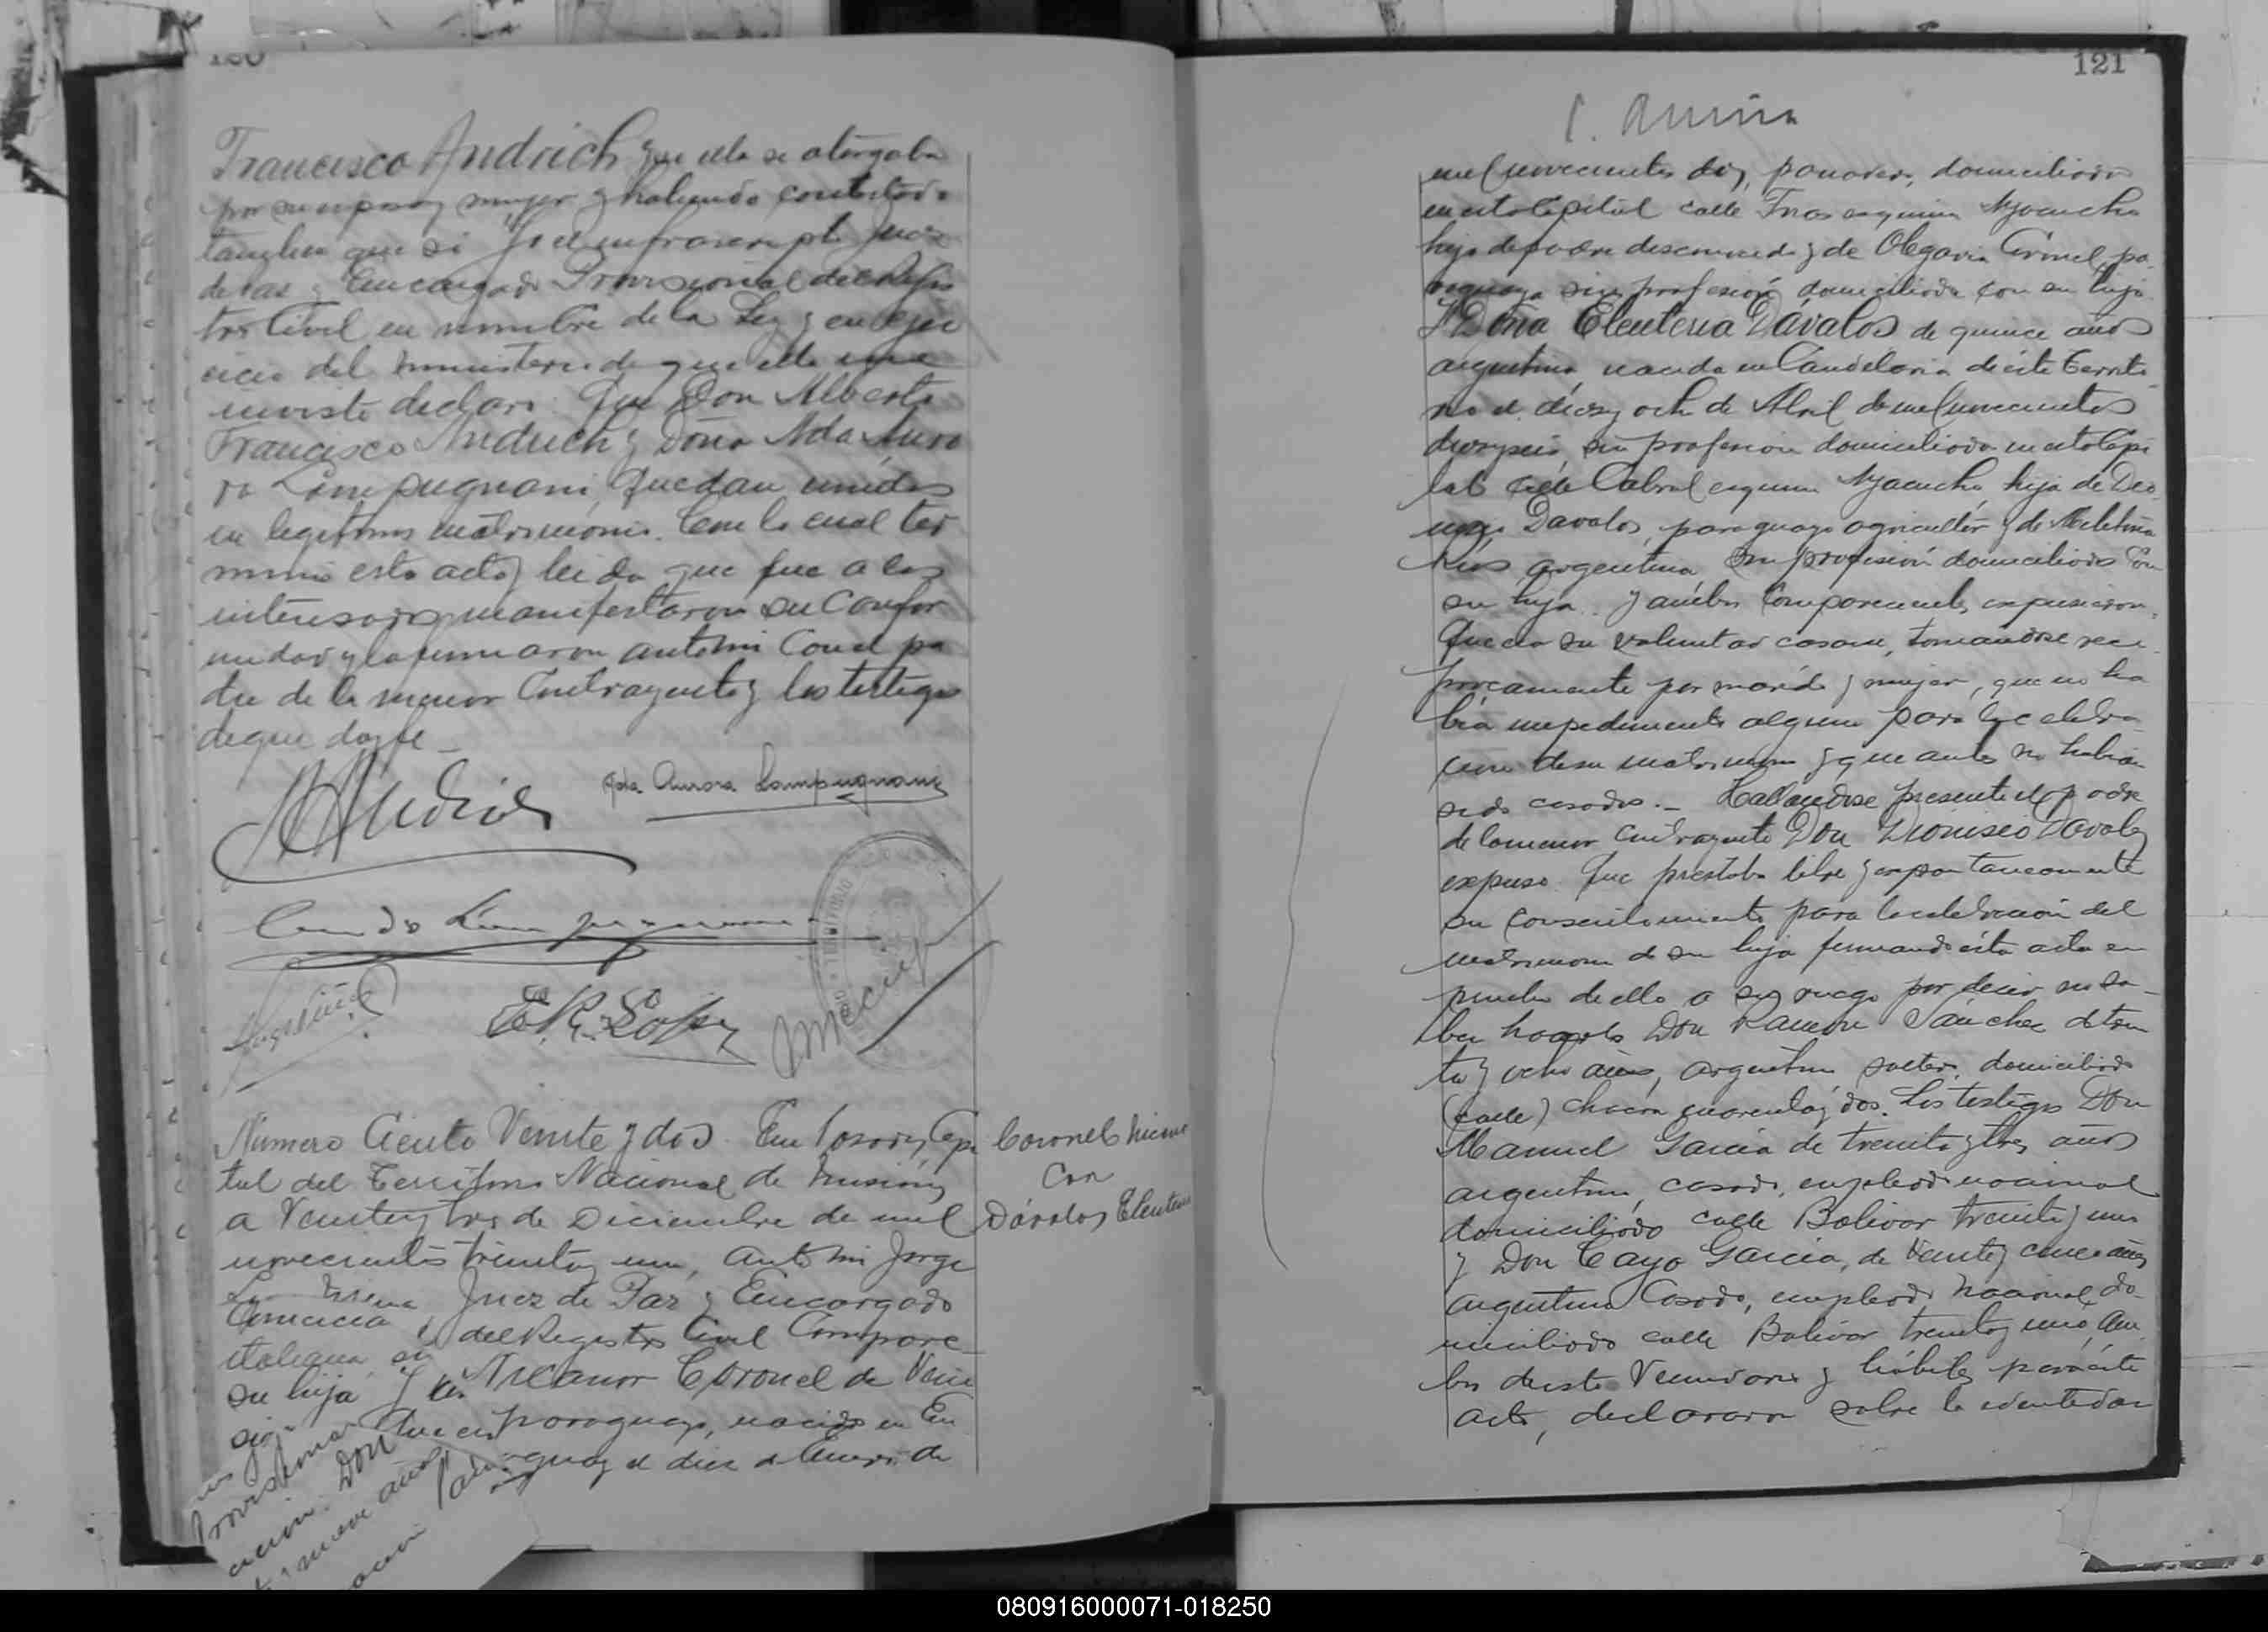 Francisco Andrich y que ella se otorgaba
por su esposa y mujer y habiendo contestado
tambien que si Yo el infrascripto Juez
de Paz y Encargado Provisional del Regis
tro Civil en nombre de la Ley y en ejer
cicio del ministerio de que ella me
inviste declaro: Que Don Alberto
Francisco Andrich y Doña Ada Auro
ra Lampugnani, Quedan unidos
en legitimo matrimonio. Con lo cual ter
minó esta acta y leida que fue a los
interesados manifestaron su confor
midad y la firmaron ante mi con el pa
dre de la menor contrayente y los testigos
de que doy fe_
Andrich
Ada Aurora Lampugnani
E. R. López
Número Ciento Veinte y dos. En Posadas, Capi
tal del Territorio Nacional de Misiones
a Veinte y tres de Diciembre de mil
novecientos treinta y uno, ante mi Jorge
Juez de Paz y Encargado
del Registro Civil Compare
Nicanor Coronel de Vein
paraguayo, nacido en En
guay el diez de Enero de
Coronel Nicanor
Con
Dávalos Eleuteria
italiana
su hija
Don
121
mil novecientos diez, panadero, domiciliado
en esta Capital calle Frias esquina Ayacucho
hijo de padre desconocido y de Olegaria Coronel, pa
raguaya sin profesión domiciliada con su hijo.
Y Doña Eleuteria Dávalos de quince años
argentina, nacida en Candelaria de éste Territo
rio el diez y ocho de Abril de mil novecientos
diez y seis, sin profesion domiciliada en esta Capi
tal calle Cabral esquina Ayacucho, hija de Dio
nisio Davalos, paraguayo agricultor y de
Rios, argentina, sin profesión domiciliados con
su hija. Y ambos comparecientes expusieron:
Que era su voluntad casarse, tomandose reci
procamente por marido y mujer, que no ha
bia impedimento alguno para la celebra
cion de su matrimonio y que antes no habian
sido casados._ Hallandose presente el padre
de la menor contrayente Don Dionisio Davalos
expuso: Que prestaba libre y espontaneamente
su consentimiento para la celebración del
matrimonio de su hija firmando ésta acta en
prueba de ello a su ruego por decir no sa
ber hacerlo Don Ramon Sánchez de trein
ta y ocho años, argentino soltero, domiciliado
(calle) Chacra cuarenta y dos. Los testigos Don
Manuel Garcia de treinta y tres años
argentino, casado, empleado nacional
domiciliado calle Bolivar treinta y uno
y Don Cayo Garcia, de Veinte y cinco años
argentino Casado, empleado Nacional do
miciliado calle Bolivar treinta y uno, Am
bos de este Vecindario y hábiles para éste
acto, declararon sobre la identidad
080916000071-018250